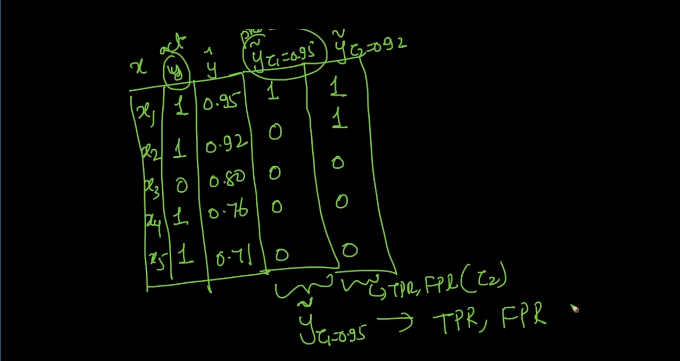 act
x y ŷ ỹτ₁=0.95 ỹτ₂=0.92
x₁ 1 0.95 1 1
x₂ 1 0.92 0 1
x₃ 0 0.80 0 0
x₄ 1 0.76 0 0
x₅ 1 0.71 0 0
TPR, FPR (τ₂)
ỹτ₁=0.95 → TPR, FPR